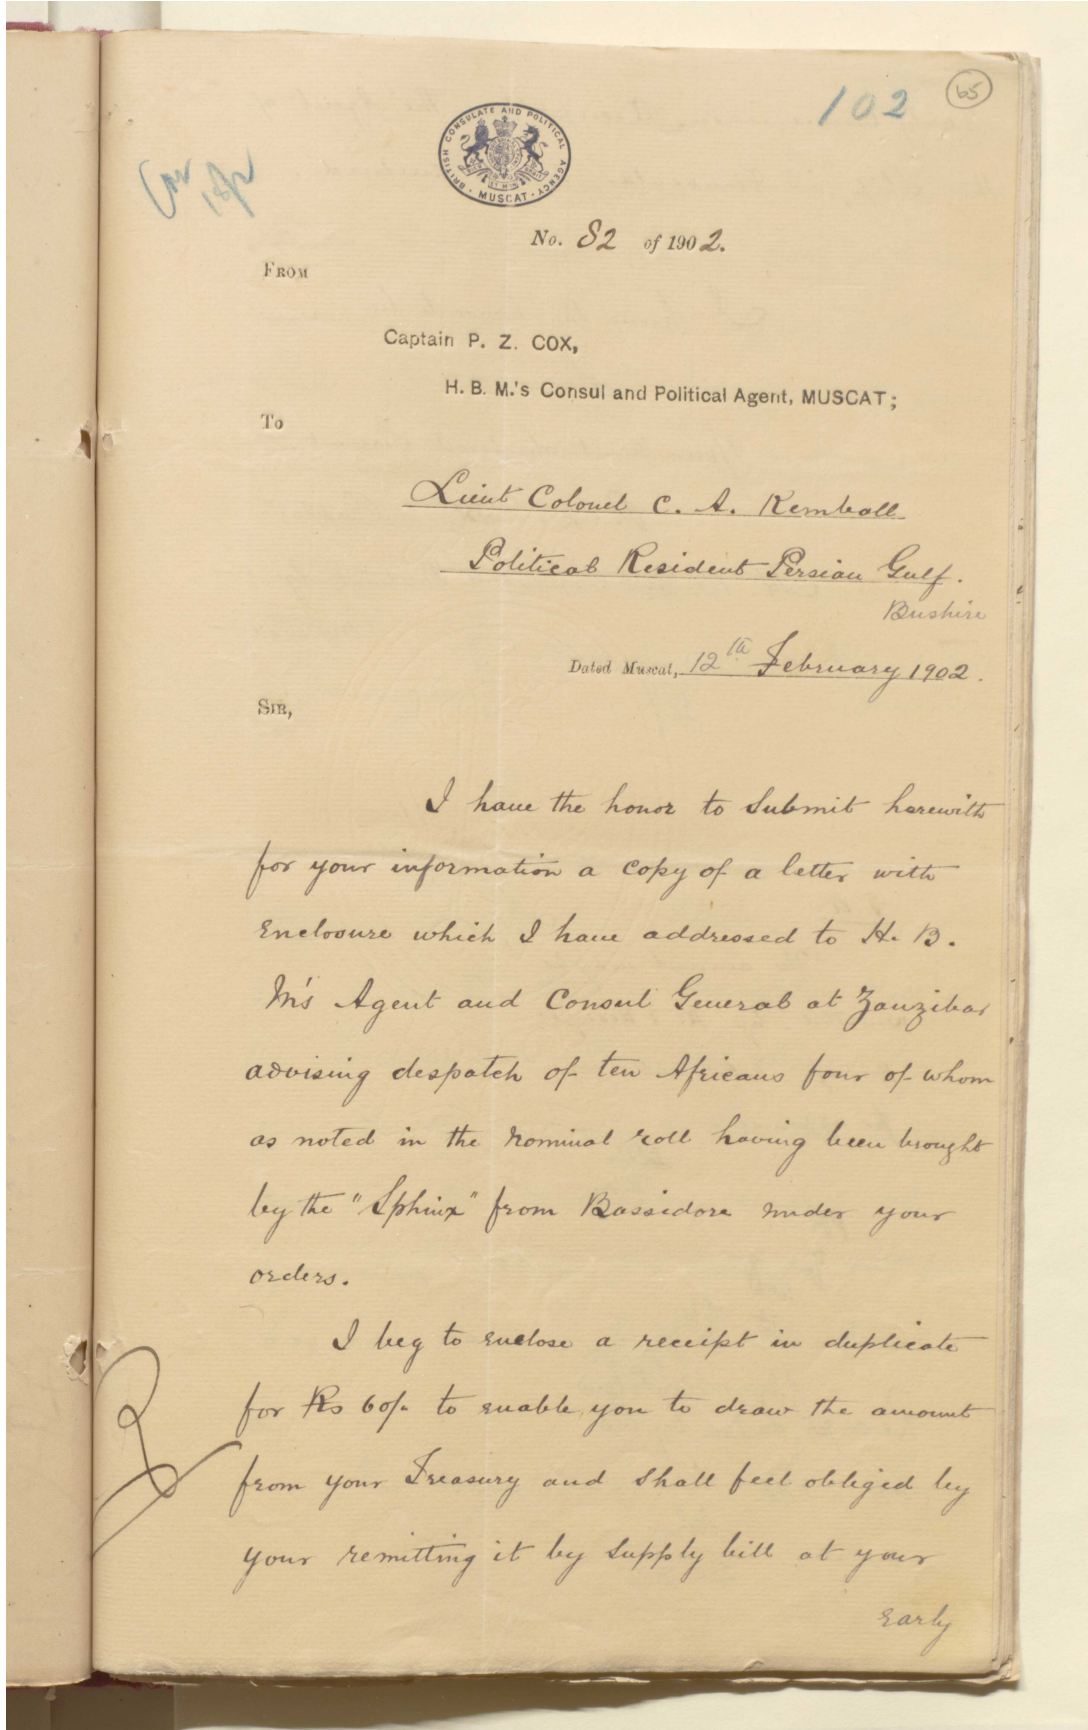 102
65
BRITISH CONSULATE AND POLITICAL AGENCY
· MUSCAT ·
No. 82 of 1902.
FROM
Captain P. Z. COX,
H. B. M.'s Consul and Political Agent, MUSCAT;
To
Lieut Colonel C. A. Kemball
Political Resident Persian Gulf.
Bushire
Dated Muscat, 12th February 1902.
SIR,
I have the honor to submit herewith
for your information a copy of a letter with
enclosure which I have addressed to H. B.
M's Agent and Consul General at Zanzibar
advising despatch of ten Africans four of whom
as noted in the nominal roll having been brought
by the "Sphinx" from Bassidore under your
orders.
I beg to enclose a receipt in duplicate
for Rs 60/- to enable you to draw the amount
from your Treasury and shall feel obliged by
your remitting it by supply bill at your
early